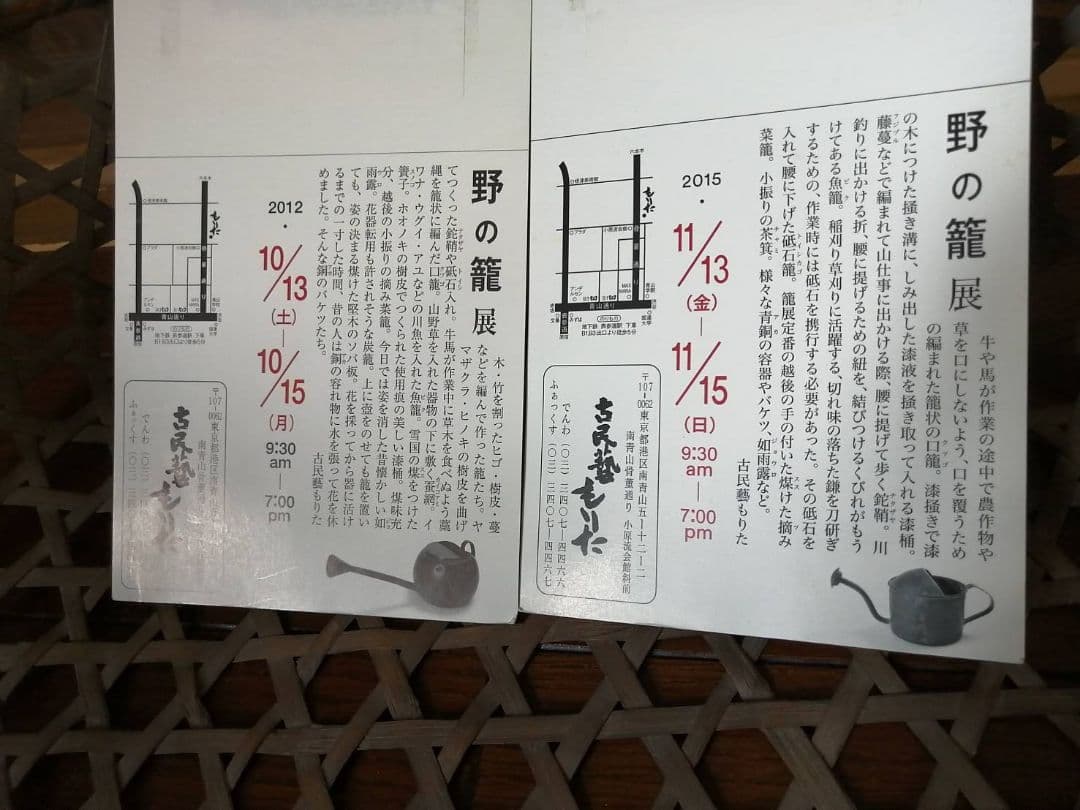 野の籠展
牛や馬が作業の途中で農作物や
草を口にしないよう、口を覆うため
の編まれた籠状の口籠。漆掻きで漆
の木につけた掻き溝に、しみ出した漆液を掻き取って入れる漆桶。
藤蔓などで編まれて山仕事に出かける際、腰に提げて歩く鉈鞘。川
釣りに出かける折、腰に提げるための紐を、結びつけるくびれがもう
けてある魚籠。稲刈り草刈りに活躍する、切れ味の落ちた鎌を刀研ぎ
するための、作業時には砥石を携行する必要があった。その砥石を
入れて腰に下げた砥石籠。籠展定番の越後の手の付いた煤けた摘み
菜籠。小振りの茶箕。様々な青銅の容器やバケツ、如雨露など。
古民藝もりた
2015・
11/13
(金)
11/15
(日)
9:30
am
7:00
pm
六本木
根津美術館
もりた
プラダ
小原流会館
骨董通り
青山通り
渋谷
地下鉄 表参道駅 下車
B1出口より徒歩5分
〒107-0062東京都港区南青山五-十二-二
南青山骨董通り 小原流会館斜前
古民藝もりた
でんわ(〇三)三四〇七-四四六六
ふぁっくす(〇三)三四〇七-四四六七
野の籠展
木・竹を割ったヒゴ・樹皮・蔓
などを編んで作った籠たち。ヤ
マザクラ・ヒノキの樹皮を曲げ
てつくった鉈鞘や砥石入れ。牛馬が作業中に草木を食べぬよう藁
縄を籠状に編んだ口籠。山野草を入れた器物の下に敷く蚕網。イ
ワナ・ウグイ・アユなどの川魚を入れた魚籠。雪国の煤をつけた
簀子。ホオノキの樹皮でつくられた使用痕の美しい漆桶。煤味充
分、越後の小振りの摘み菜籠。今日では姿を消した昔懐かしい如
雨露。花器転用も許されそうな炭籠。上に壺をのせても籠を置い
ても、姿の決まる煤けた堅木のソバ板。花を採ってから器に活け
るまでの一寸した時間、昔の人は銅の容れ物に水を張って花を休
めました。そんな銅のバケツたち。
古民藝もりた
2012・
10/13
(土)
10/15
(月)
9:30
am
7:00
pm
六本木
根津美術館
もりた
プラダ
小原流会館
骨董通り
青山通り
渋谷
地下鉄 表参道駅 下車
B1出口より徒歩5分
〒107-0062東京都港区南青山
南青山骨董通り
古民藝もりた
でんわ(〇三)三四〇七-四四六六
ふぁっくす(〇三)三四〇七-四四六七